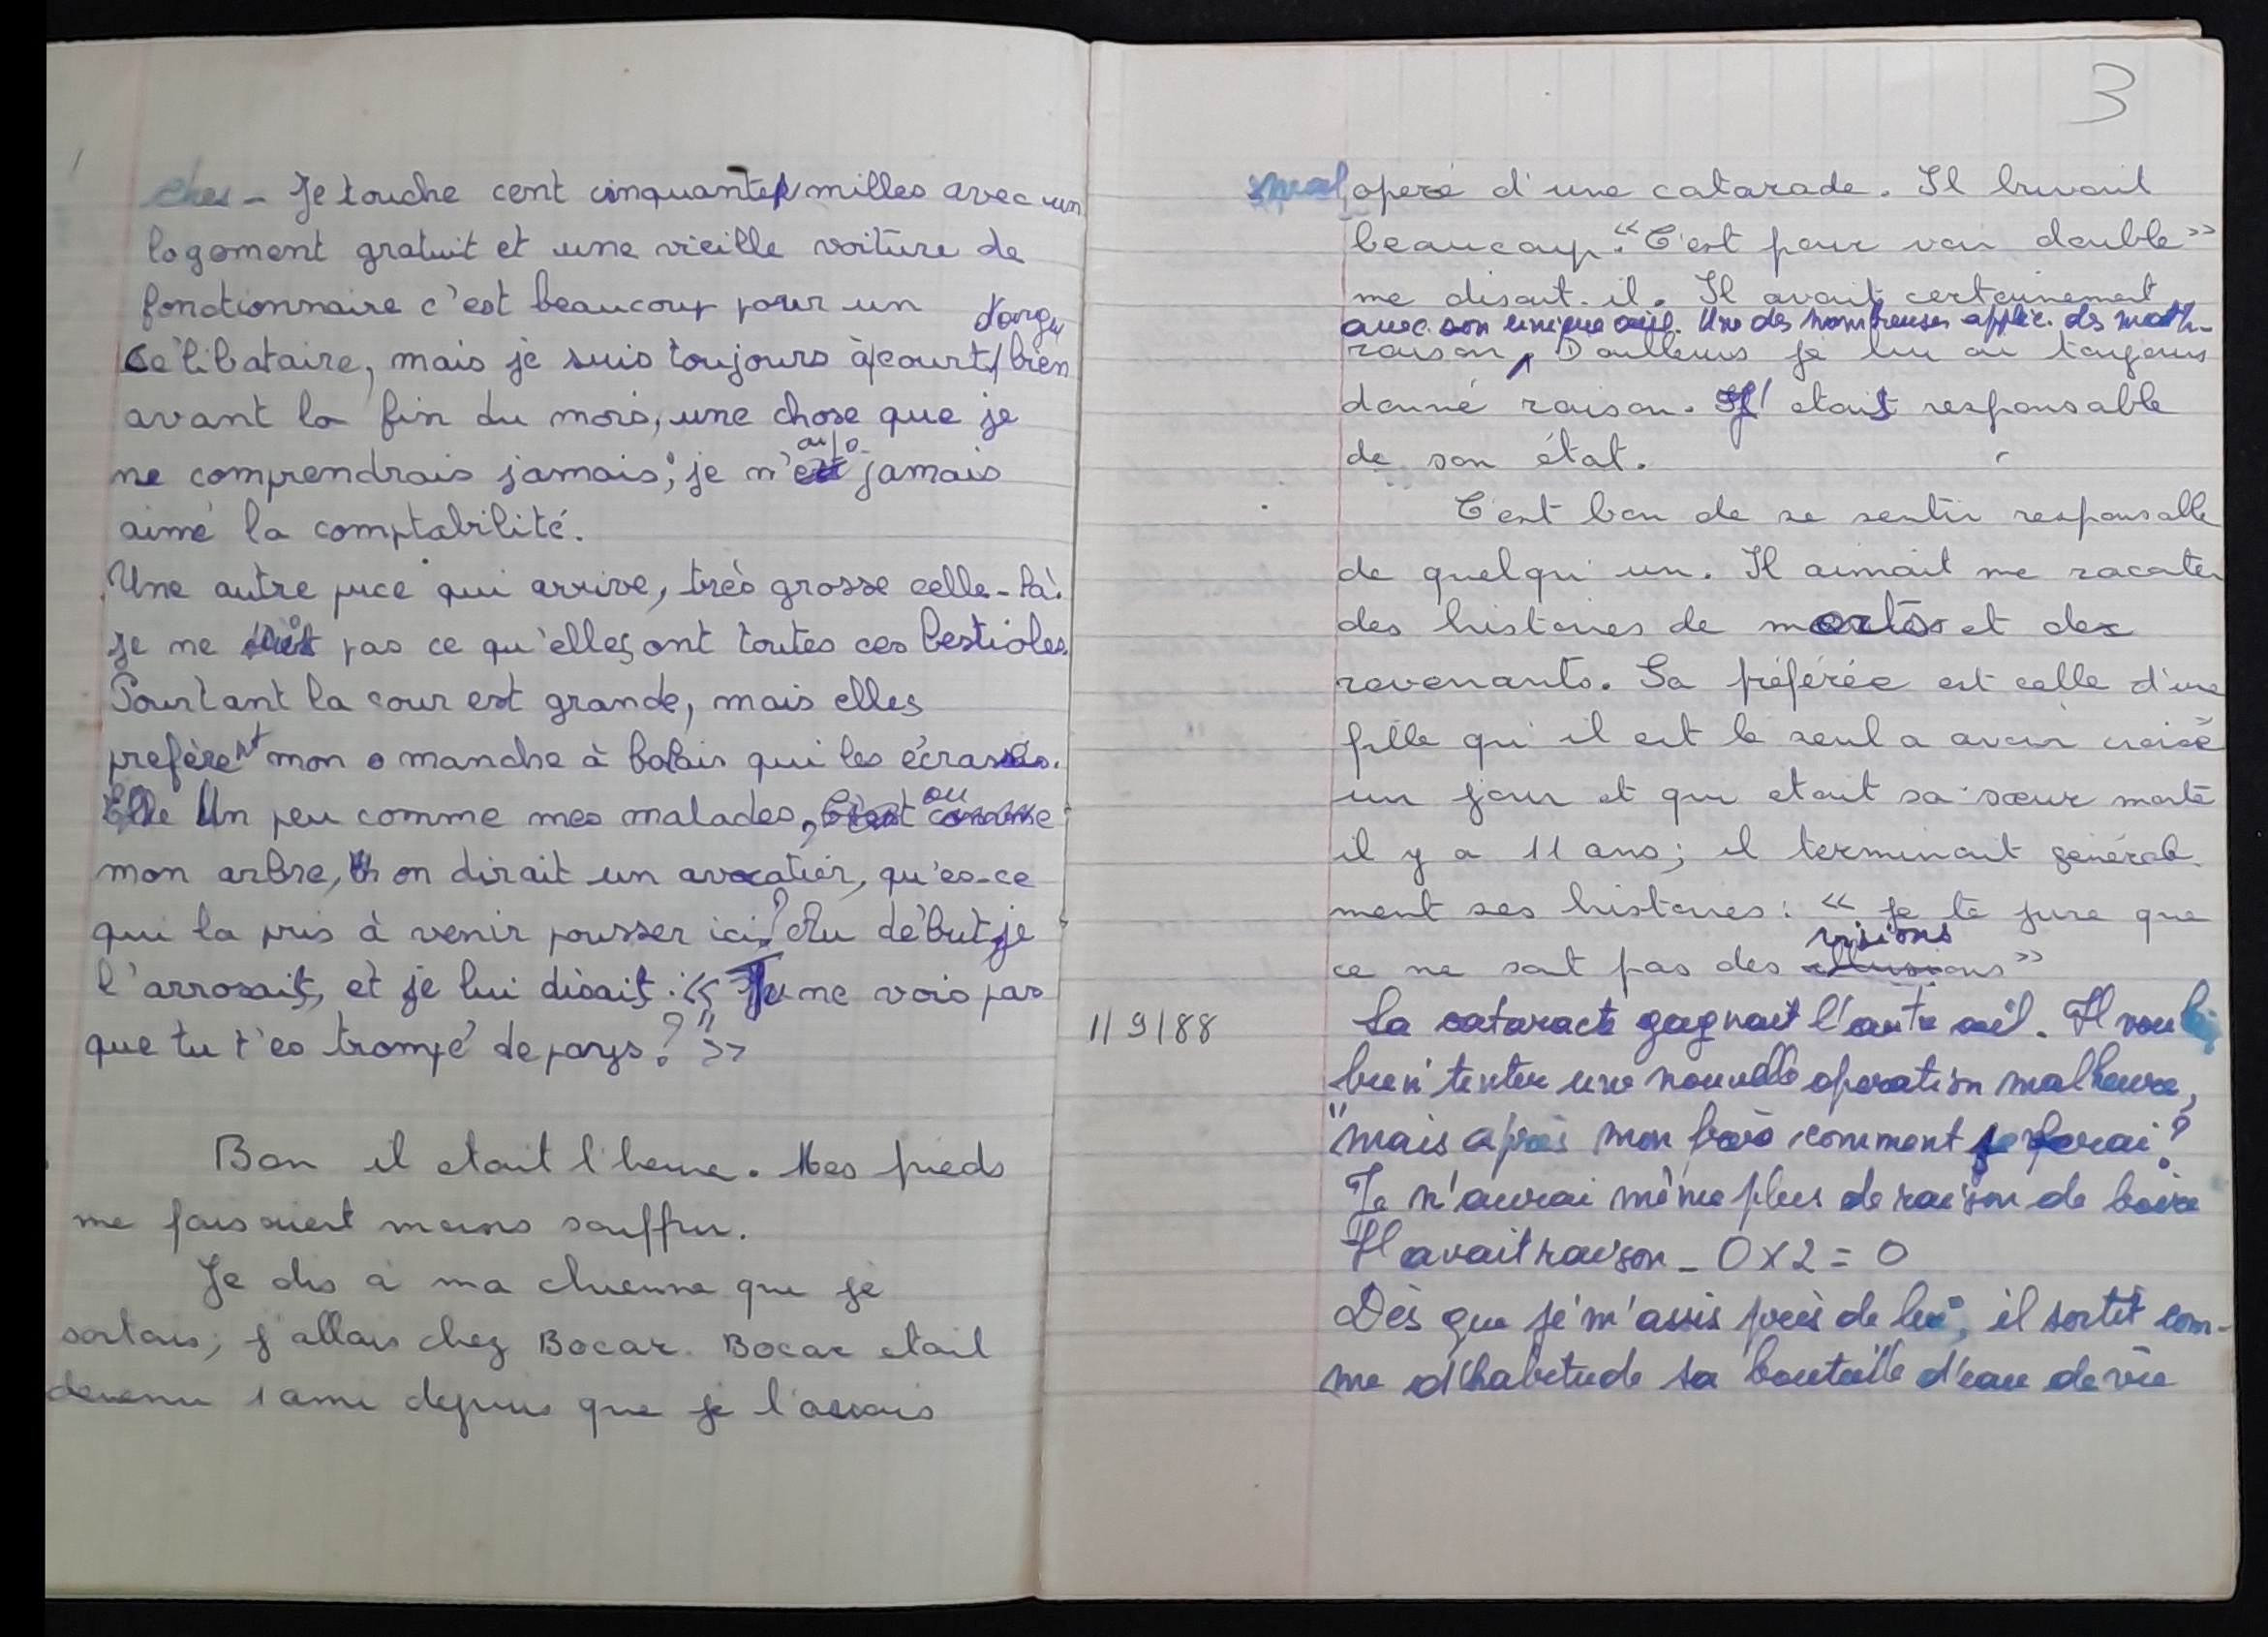 ches - Je touche cent cinquante milles avec un
logement gratuit et une vieille voiture de
fonctionnaire c'est beaucoup pour un
d'argu
célibataire, mais je suis toujours à court bien
avant la fin du mois, une chose que je
ne comprendrais jamais; je n'ai jamais
aimé la comptabilité.
Une autre puce qui arrive, très grosse celle-là.
Je ne sais pas ce qu'elles ont toutes ces bestioles.
Pourtant la cour est grande, mais elles
prefèrent mon manche à balais qui les écrases.
Un peu comme mes malades, ou comme
mon arbre, on dirait un avocatier, qu'es-ce
qui la pris à venir pousser ici? Au début je
l'arrosais, et je lui disais : « Tu ne vois pas
que tu t'es trompé de pays? »
Bon il etait l'heure. Mes pieds
me faisaient moins souffrir.
Je dis a ma chienne que je
sortais; j'allais chez Bocar. Bocar etait
devenu 1 ami depuis que je l'avais
3
mal operé d'une catarade. Il buvait
beaucoup. "C'est pour voir double"
me disait-il. Il avait certainement
avec son unique oeil. Une des nombreuses applic. des math-
raison. D'ailleurs je lui ai toujours
donné raison. J'etais responsable
de son état.
C'est bon de se sentir responsable
de quelqu'un. Il aimait me raconter
des histoires de morts et des
revenants. Sa préférée est celle d'une
fille qu'il est le seul a avoir croisé
un jour et qui etait sa soeur morte
il y a 11 ans; il terminait général-
ment ses histoires: « je te jure que
visions
ce ne sont pas des illusions"
1/9/88
La cataracte gagnait l'autre oeil. Il voulait
bien tenter une nouvelle operation malheure,
"mais après mon frère comment je ferai?
Je n'aurai même plus de raison de boire
Il avait raison - 0 x 2 = 0
Dès que je m'assis près de lui, il sortit com-
me d'habitude sa bouteille d'eau de vie